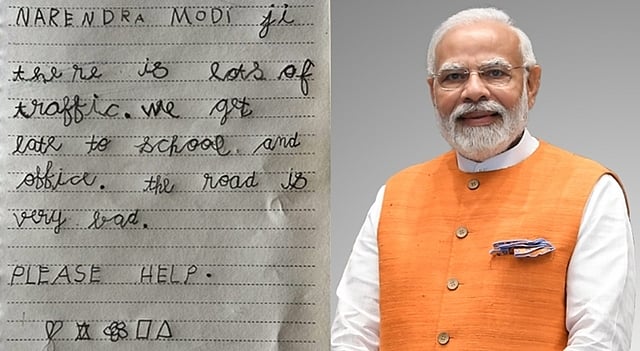 NARENDRA MODI ji
there is lots of
traffic. we get
late to school and
office. the road is
very bad.
PLEASE HELP.